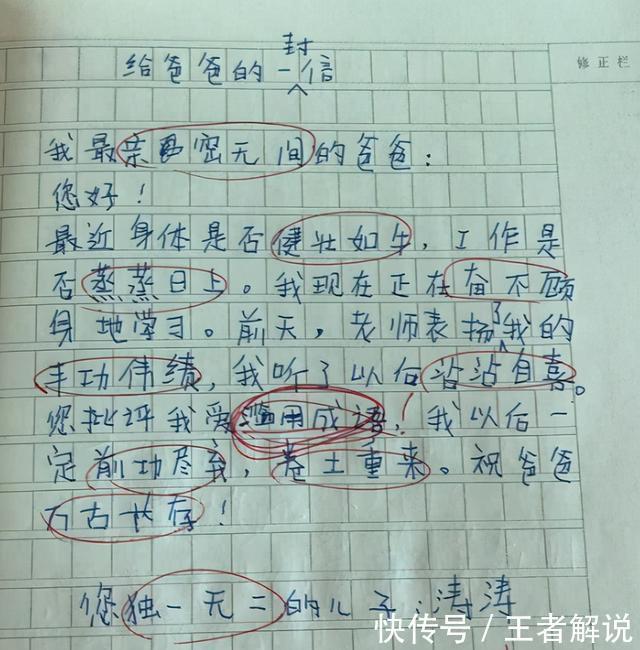 给爸爸的一封信
修正栏
我最亲密无间的爸爸：
您好！
最近身体是否健壮如牛，工作是
否蒸蒸日上。我现在正在奋不顾
身地学习。前天，老师表扬了我的
丰功伟绩，我听了以后沾沾自喜。
您批评我爱滥用成语，我以后一
定前功尽弃，卷土重来。祝爸爸
万古长存！
您独一无二的儿子：涛涛
快传号/王者解说